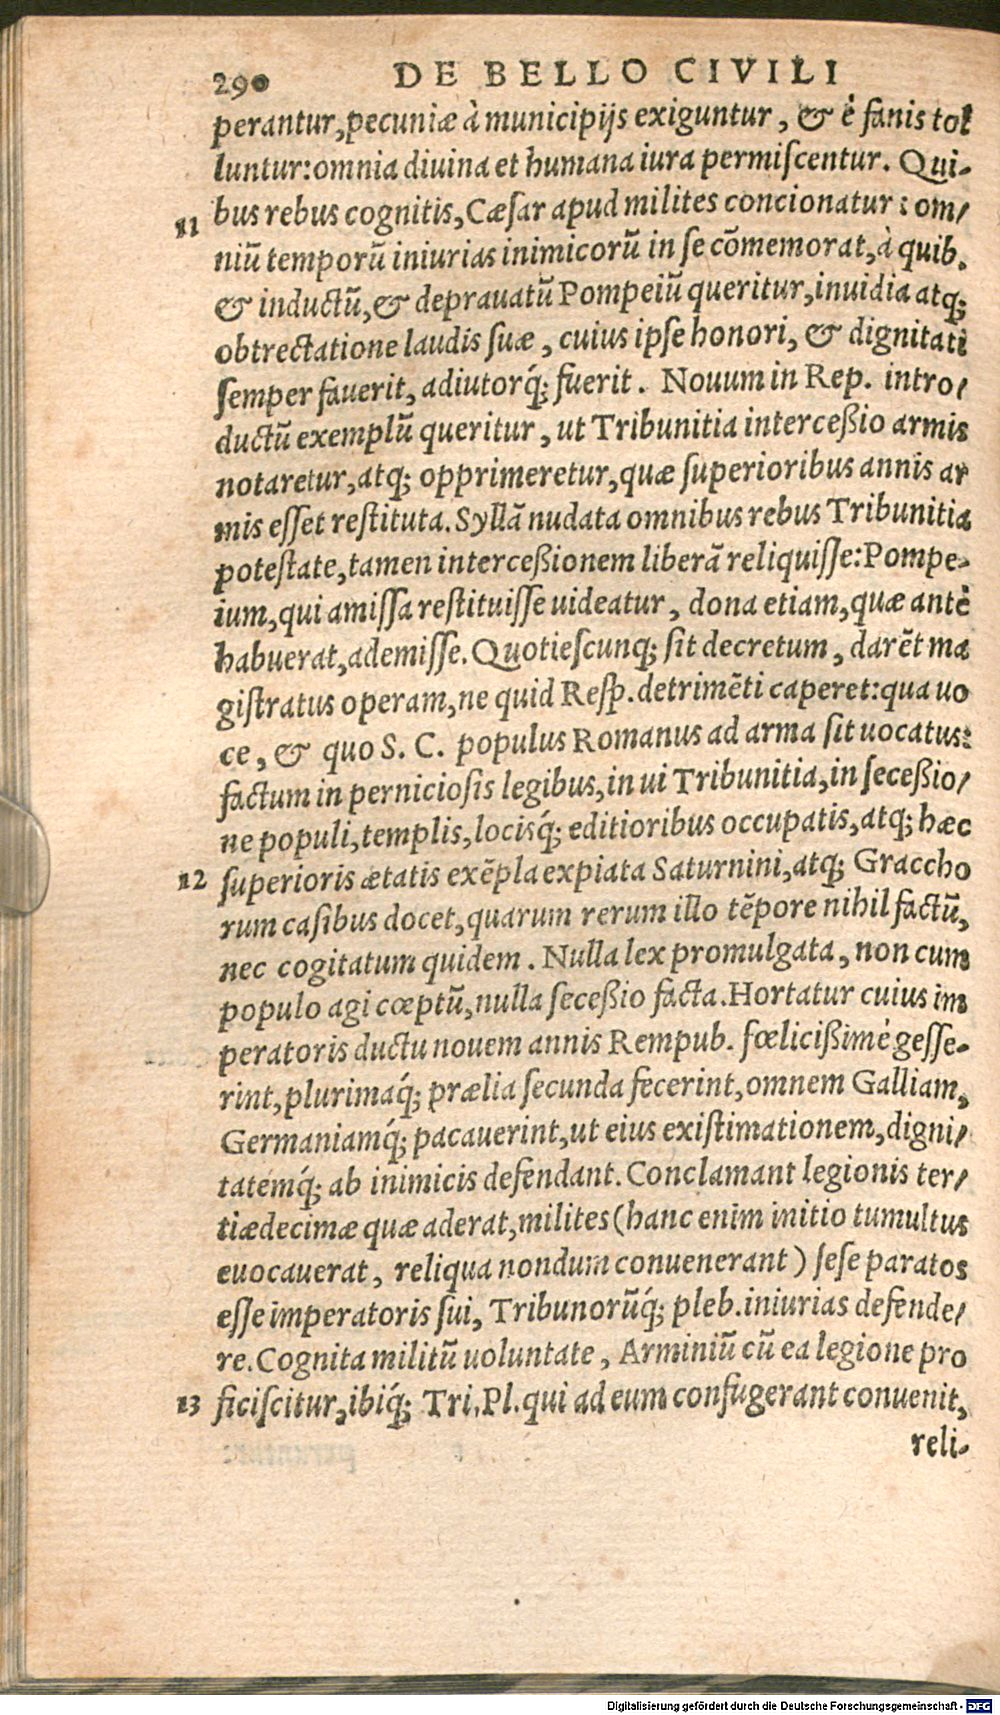 290 DE BELLO CIVILI
perantur, pecuniæ à municipijs exiguntur, & è fanis tol
luntur: omnia diuina et humana iura permiscentur. Qui-
11 bus rebus cognitis, Cæsar apud milites concionatur: om-
niũ temporũ iniurias inimicorũ in se cõmemorat, à quib.
& inductũ, & deprauatũ Pompeiũ queritur, inuidia atq;
obtrectatione laudis suæ, cuius ipse honori, & dignitati
semper fauerit, adiutorq́; fuerit. Nouum in Rep. intro-
ductũ exemplũ queritur, ut Tribunitia interceßio armis
notaretur, atq; opprimeretur, quæ superioribus annis ar
mis esset restituta. Syllã nudata omnibus rebus Tribunitia
potestate, tamen interceßionem liberã reliquisse: Pompe-
ium, qui amissa restituisse uideatur, dona etiam, quæ antè
habuerat, ademisse. Quotiescunq; sit decretum, darẽt ma
gistratus operam, ne quid Resp. detrimẽti caperet: qua uo
ce, & quo S. C. populus Romanus ad arma sit uocatus:
factum in perniciosis legibus, in ui Tribunitia, in seceßio-
ne populi, templis, locisq́; editioribus occupatis, atq; hæc
12 superioris ætatis exẽpla expiata Saturnini, atq; Graccho
rum casibus docet, quarum rerum illo tẽpore nihil factũ,
nec cogitatum quidem. Nulla lex promulgata, non cum
populo agi cœptũ, nulla seceßio facta. Hortatur cuius im
peratoris ductu nouem annis Rempub. fœlicißimè gesse-
rint, plurimaq́; prælia secunda fecerint, omnem Galliam,
Germaniamq́; pacauerint, ut eius existimationem, digni-
tatemq́; ab inimicis defendant. Conclamant legionis ter-
tiædecimæ quæ aderat, milites (hanc enim initio tumultus
euocauerat, reliqua nondum conuenerant) sese paratos
esse imperatoris sui, Tribunorũq́; pleb. iniurias defende-
re. Cognita militũ uoluntate, Arminiũ cũ ea legione pro
13 ficiscitur, ibiq́; Tri. Pl. qui ad eum confugerant conuenit,
reli-
Digitalisierung gefördert durch die Deutsche Forschungsgemeinschaft - DFG